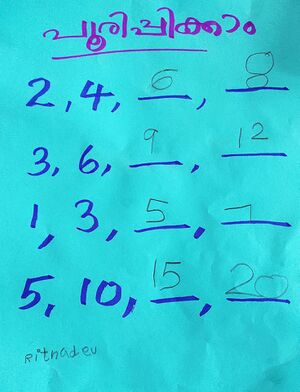 പൂരിപ്പിക്കാം
2, 4, 6, 8
3, 6, 9, 12
1, 3, 5, 7
5, 10, 15, 20
ritnadev